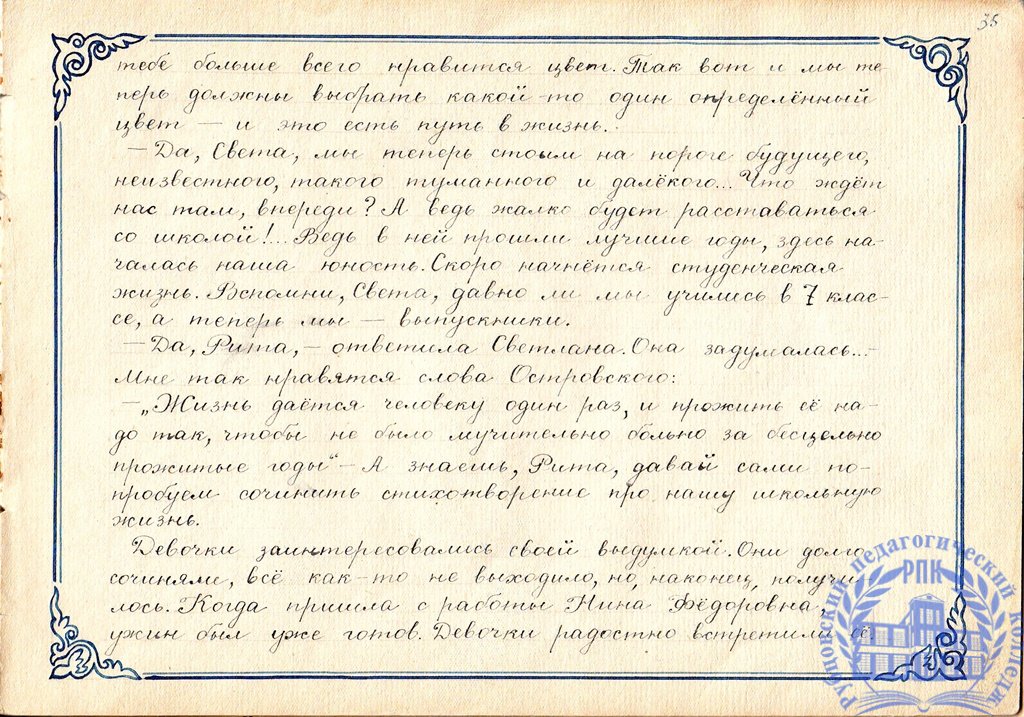 35
тебе больше всего нравится цвет. Так вот и мы те-
перь должны выбрать какой-то один определённый
цвет — и это есть путь в жизнь.
— Да, Света, мы теперь стоим на пороге будущего,
неизвестного, такого туманного и далёкого... Что ждёт
нас там, впереди? А ведь жалко будет расставаться
со школой!... Ведь в ней прошли лучшие годы, здесь на-
чалась наша юность. Скоро начнётся студенческая
жизнь. Вспомни, Света, давно ли мы учились в 7 клас-
се, а теперь мы — выпускники.
— Да, Рита, — ответила Светлана. Она задумалась... —
Мне так нравятся слова Островского:
— „Жизнь даётся человеку один раз, и прожить её на-
до так, чтобы не было мучительно больно за бесцельно
прожитые годы“ — А знаешь, Рита, давай сами по-
пробуем сочинить стихотворение про нашу школьную
жизнь.
Девочки заинтересовались своей выдумкой. Они долго
сочиняли, всё как-то не выходило, но, наконец, получи
лось. Когда пришла с работы Нина Фёдоровна,
ужин был уже готов. Девочки радостно встретили её.
Рубцовский педагогический колледж
РПК